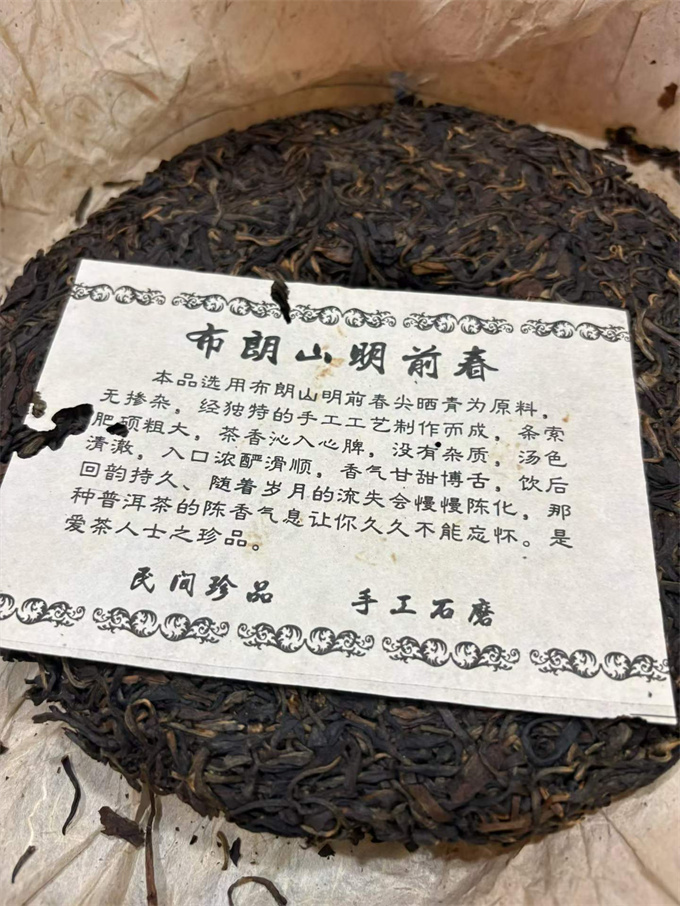 布朗山明前春
本品选用布朗山明前春尖晒青为原料，
无掺杂，经独特的手工工艺制作而成，条索
肥硕粗大，茶香沁入心脾，没有杂质，汤色
清澈，入口浓酽滑顺，香气甘甜博舌，饮后
回韵持久、随着岁月的流失会慢慢陈化，那
种普洱茶的陈香气息让你久久不能忘怀。是
爱茶人士之珍品。
民间珍品 手工石磨